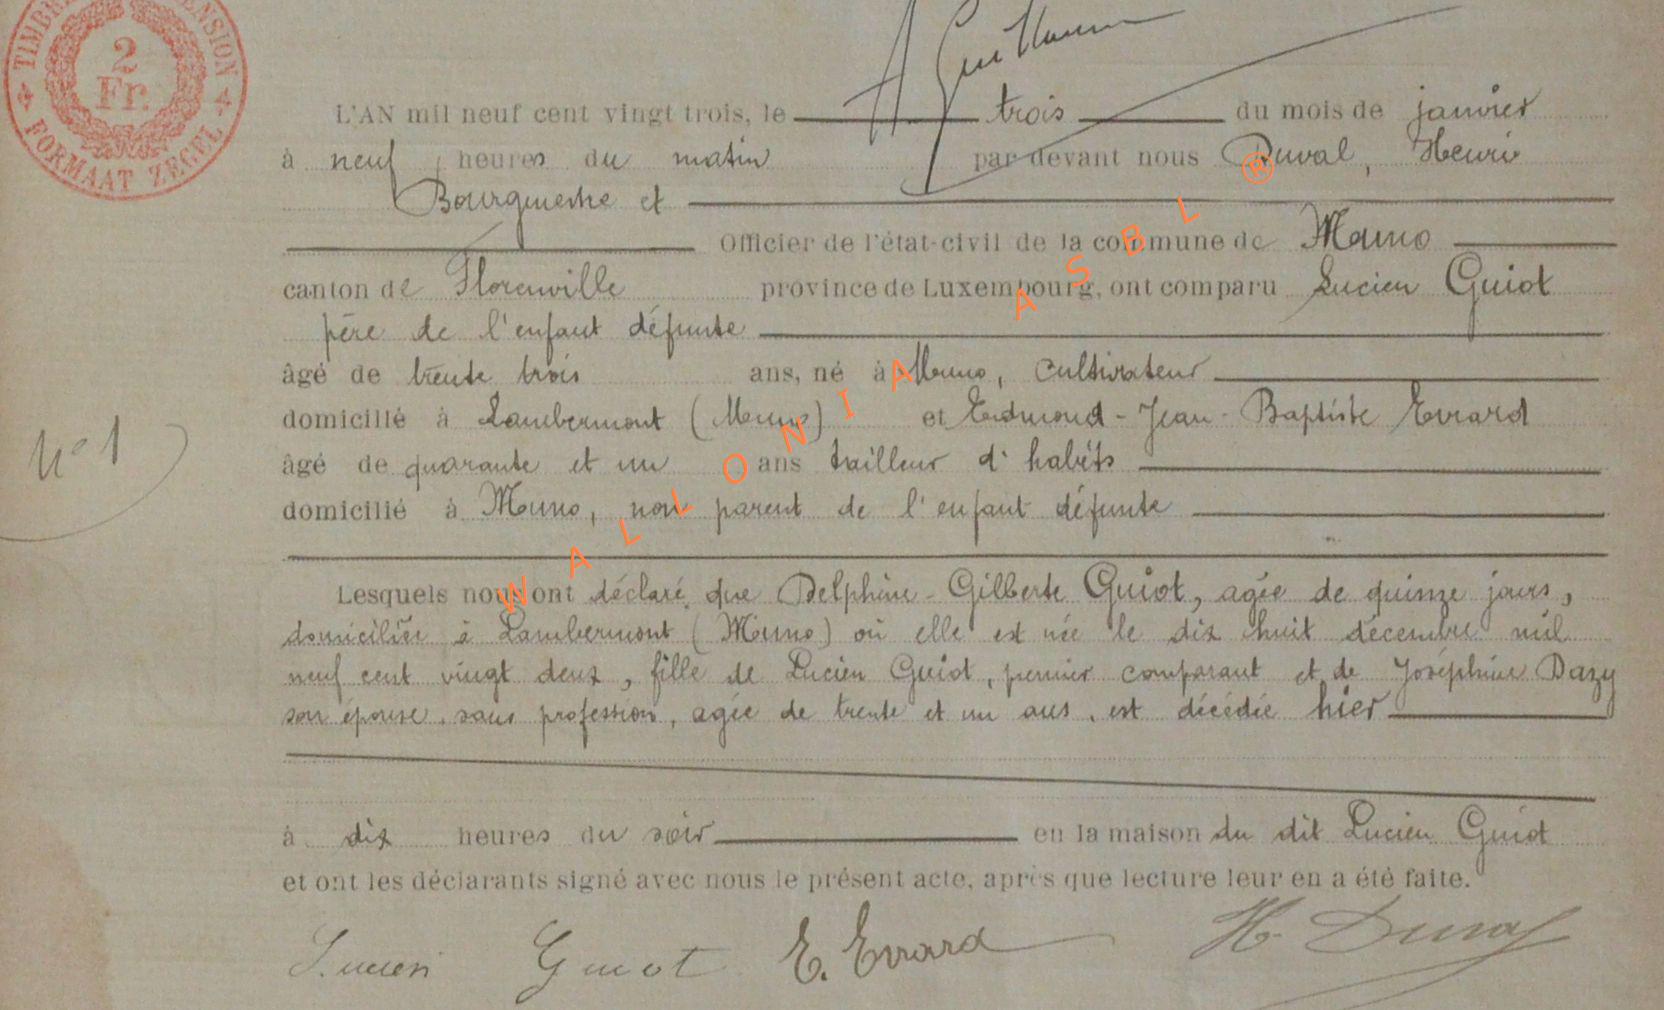 TIMBRE DE DIMENSION
2
Fr.
FORMAAT ZEGEL
A Guillaume
L'AN mil neuf cent vingt trois, le trois du mois de janvier
à neuf heures du matin par devant nous Duval, Henri
Bourgmestre et
Officier de l'état-civil de la commune de Muno
canton de Florenville province de Luxembourg, ont comparu Lucien Guiot
père de l'enfant défunte
âgé de trente trois ans, né à Muno, cultivateur
domicilié à Lambermont (Muno) et Edmond-Jean-Baptiste Evrard
N° 1
âgé de quarante et un ans tailleur d'habits
domicilié à Muno, non parent de l'enfant défunte
Lesquels nous ont déclaré que Delphine-Gilberte Guiot, agée de quinze jours,
domiciliée à Lambermont (Muno) où elle est née le dix huit décembre mil
neuf cent vingt deux, fille de Lucien Guiot, premier comparant et de Joséphine Dazy
son épouse, sans profession, agée de trente et un ans, est décédée hier
à dix heures du soir en la maison du dit Lucien Guiot
et ont les déclarants signé avec nous le présent acte, après que lecture leur en a été faite.
Lucien Guiot E. Evrard H. Duval
WALLONIA ASBL ®